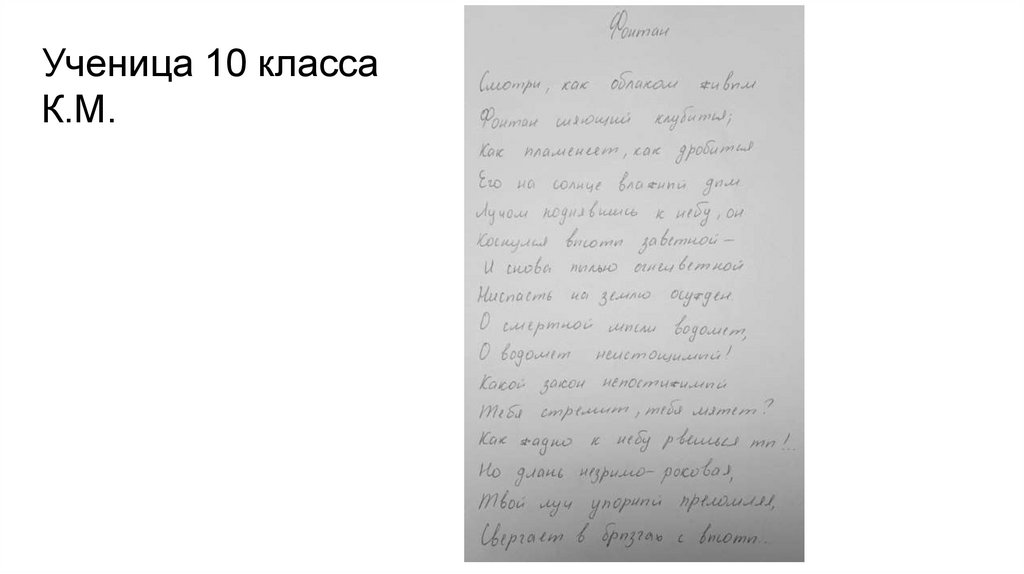 Ученица 10 класса
К.М.
Фонтан
Смотри, как облаком живым
Фонтан сияющий клубится;
Как пламенеет, как дробится
Его на солнце влажный дым
Лучом поднявшись к небу, он
Коснулся высоты заветной –
И снова пылью огнецветной
Ниспасть на землю осужден.
О смертной мысли водомет,
О водомет неистощимый!
Какой закон непостижимый
Тебя стремит, тебя мятет?
Как жадно к небу рвешься ты!..
Но длань незримо-роковая,
Твой луч упорный преломляя,
Свергает в брызгах с высоты..